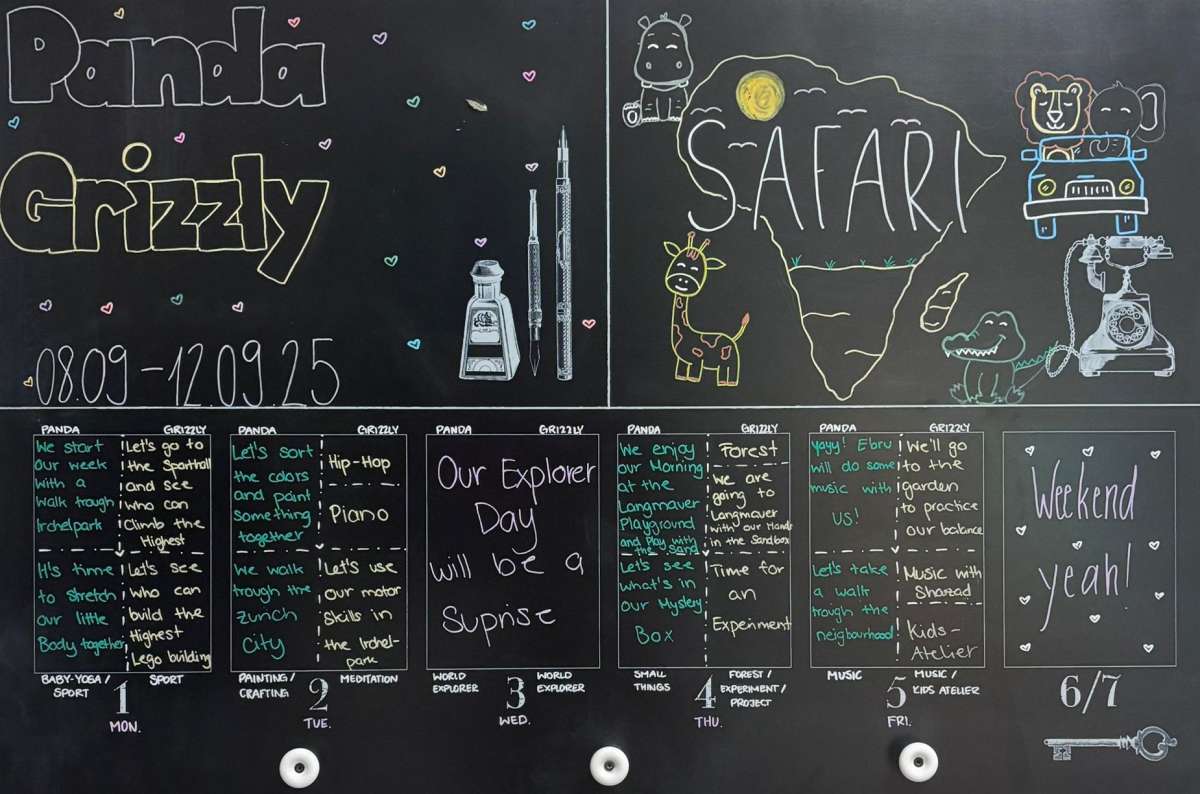 Panda
Grizzly
08.09 - 12.09.25
SAFARI
PANDA
We start
our week
with a
walk trough
Irchelpark
It's time
to stretch
our little
Body together
BABY-YOGA /
SPORT
GRIZZLY
Let's go to
the Sporthall
and see
who can
Climb the
Highest
Let's see
who can
build the
Highest
Lego building
SPORT
1
MON.
PANDA
Let's sort
the colors
and paint
something
together
We walk
trough the
zurich
City
PAINTING /
CRAFTING
GRIZZLY
Hip-Hop
Piano
Let's use
our motor
Skills in
the Irchel-
park
MEDITATION
2
TUE.
PANDA
GRIZZLY
Our Explorer
Day
will be a
Suprise
WORLD
EXPLORER
WORLD
EXPLORER
3
WED.
PANDA
We enjoy
our Morning
at the
Langmauer
Playground
and Play with
the Sand
Let's see
what's in
our Mystery
Box
SMALL
THINGS
GRIZZLY
Forest
We are
going to
Langmauer
with our Hands
in the Sandbox
Time for
an
Experiment
FOREST /
EXPERIMENT /
PROJECT
4
THU.
PANDA
yayy! Ebru
will do some
music with
us!
Let's take
a walk
trough the
neigbourhood
MUSIC
GRIZZLY
We'll go
to the
garden
to practice
our balance
Music with
Sharzad
Kids-
Atelier
MUSIC /
KIDS ATELIER
5
FRI.
Weekend
yeah!
6/7